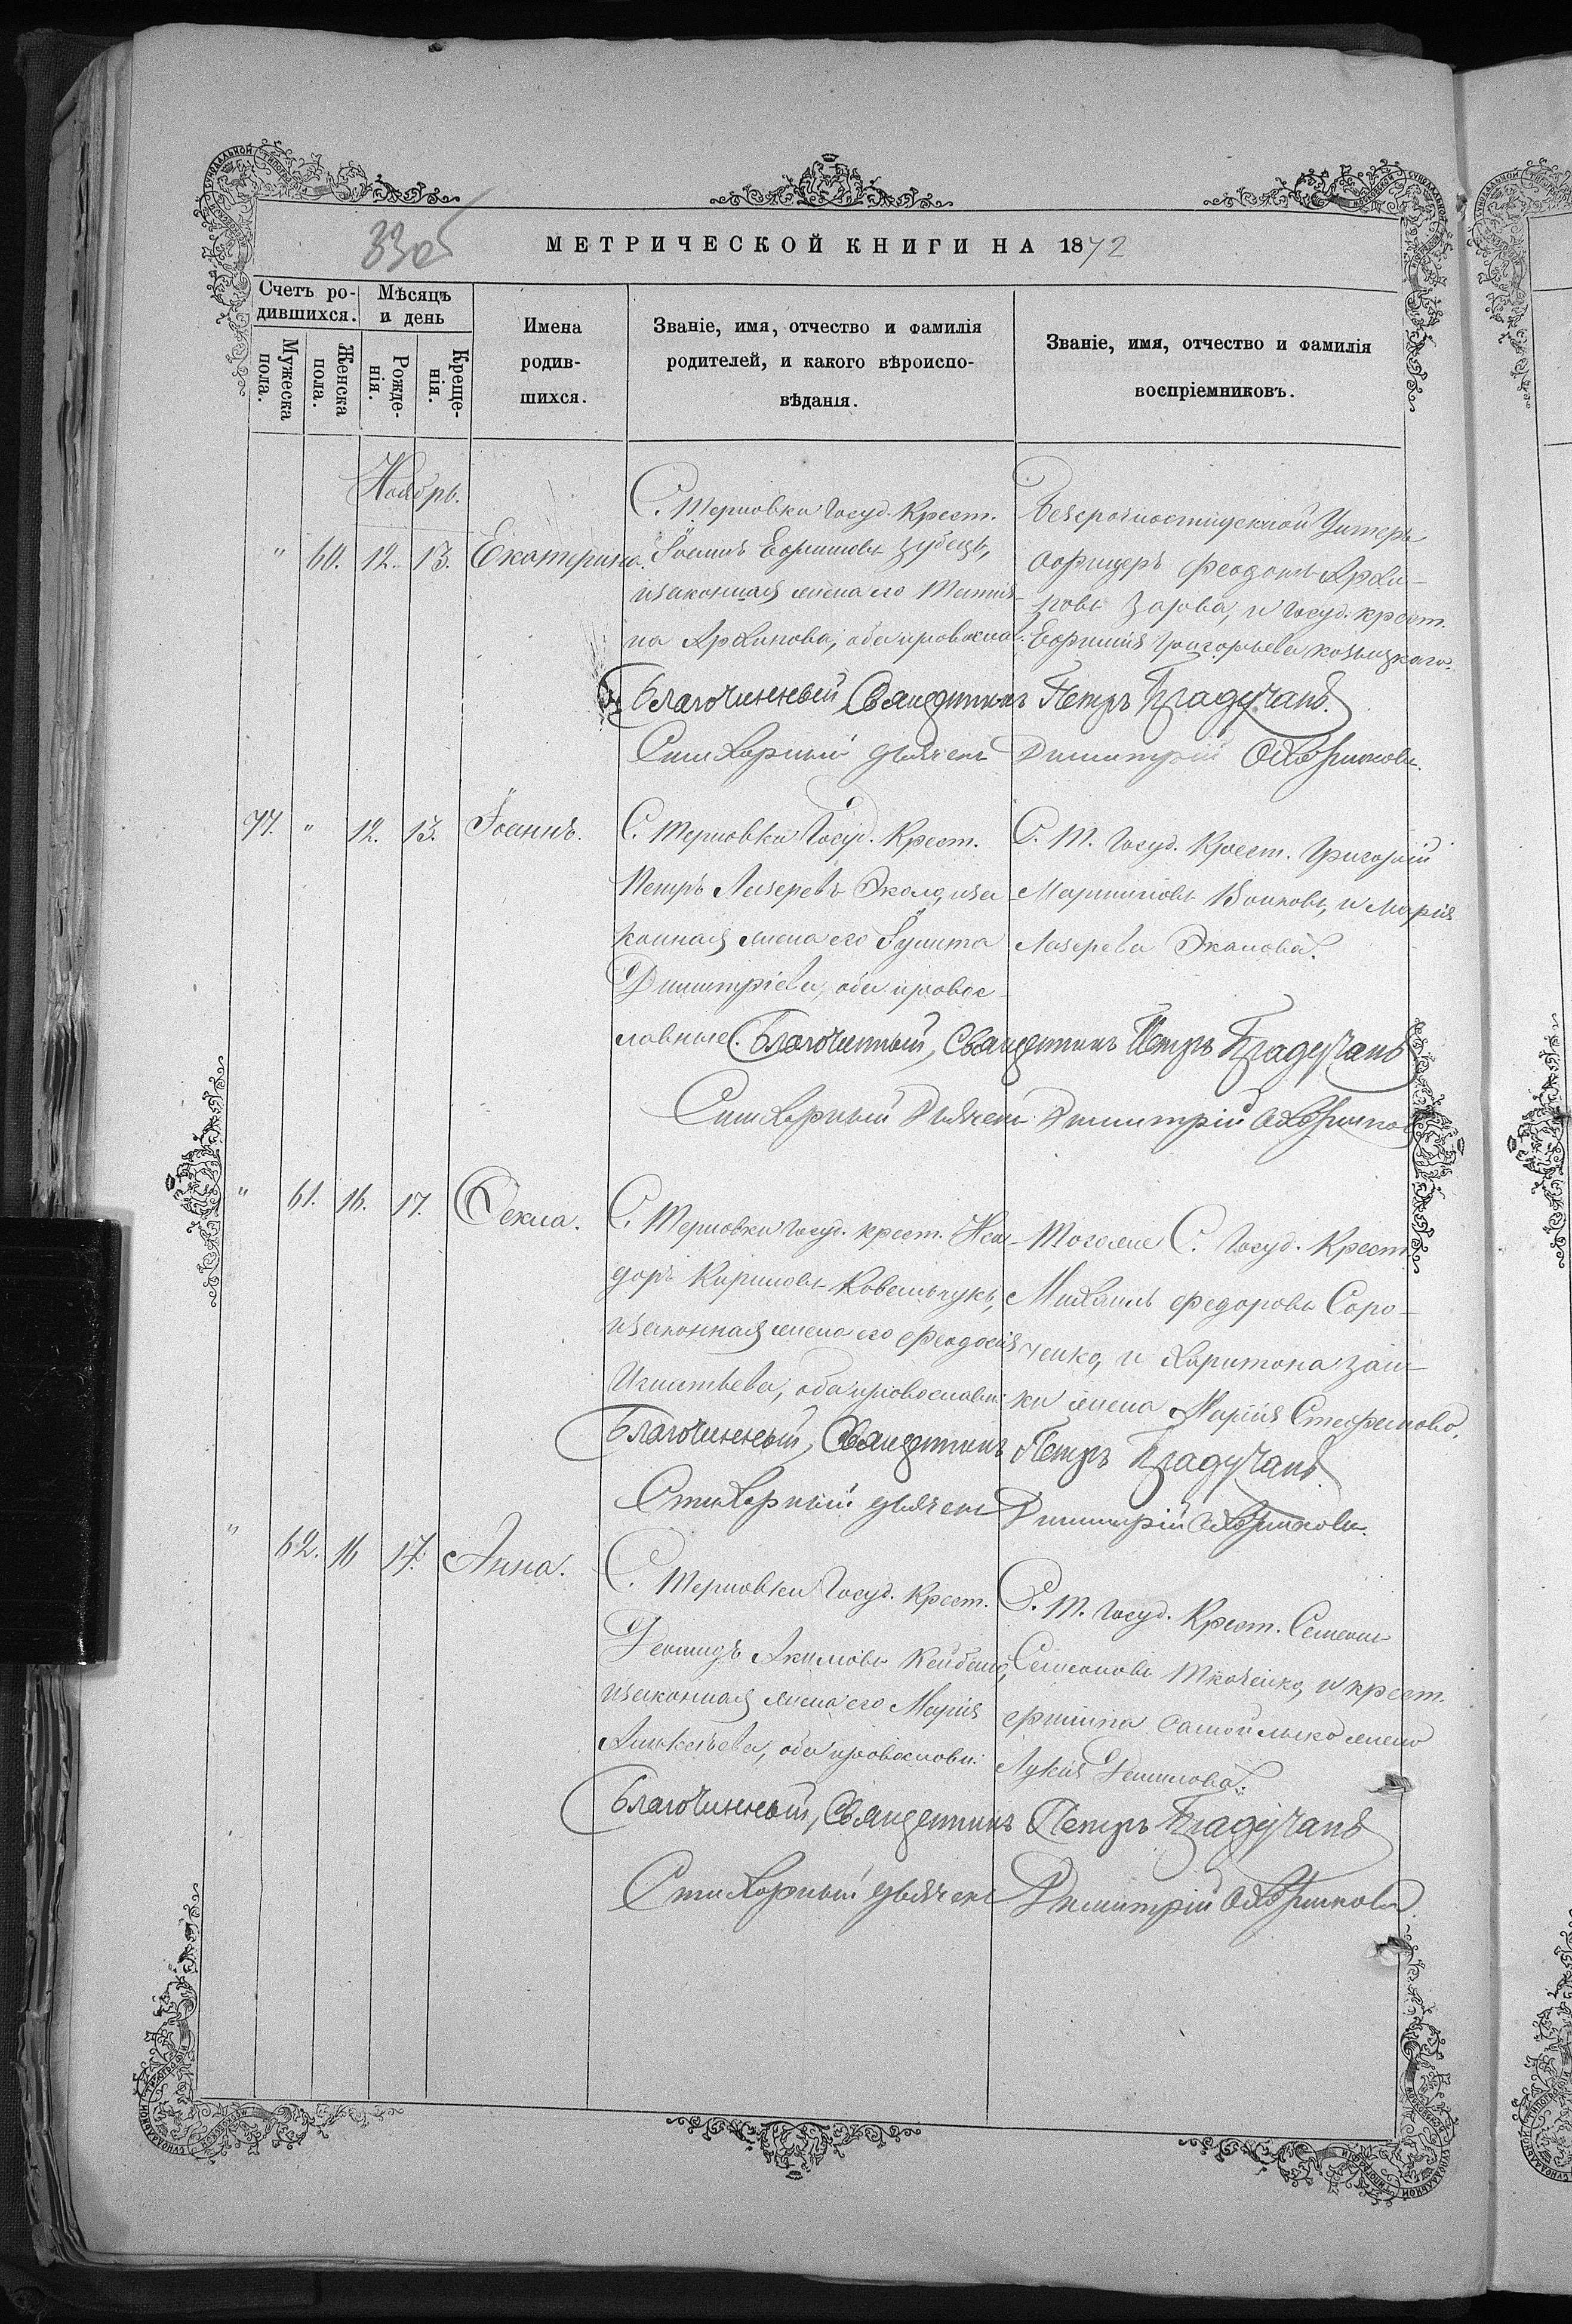 33об
МЕТРИЧЕСКОЙ КНИГИ НА 1872
Счетъ ро-
дившихся.
Мѣсяцъ
и день
Мужеска
пола.
Женска
пола.
Рожде-
нія.
Креще-
нія.
Имена
родив-
шихся.
Званіе, имя, отчество и фамилія
родителей, и какого вѣроиспо-
вѣданія.
Званіе, имя, отчество и фамилія
воспріемниковъ.
Ноябрь.
" 60. 12. 13. Екатерина.
С. Терновки Госуд. Крест.
Іоаннъ Ефимовъ Зубецъ,
изаконная жена его Татiя-
на Архипова, оба православ.
Безсрочноотпускной Унтеръ
Офицеръ Феодотъ Архи-
повъ и Госуд. крест.
Ефимія Григорьева
Благочинный Священникъ Петръ
Стихарный дьячекъ Димитрій
77. " 12. 13. Іоаннъ.
С. Терновки Госуд. Крест.
Петръ Лазаревъ иза
конная жена его Іулита
Димитріева, оба правос-
лавные.
С. Т. Госуд. Крест. Григорій
Мартиновъ Воиновъ, и Марія
Лазарева
Благочинный, Священникъ Петръ
Стихарный Дьячекъ Димитрій
" 61. 16. 17. Фекла.
С. Терновки Госуд. крест. Иси-
доръ Кириловъ Ковальчукъ,
изаконная жена его Феодосія
Игнатьева, оба православн:
Тогоже С. Госуд. Крест.
Михаилъ Федоровъ Соро-
ченко, и Харитона Заи-
ки жена Марія Стефанова.
Благочинный, Священникъ Петръ
Стихарный дьячекъ Димитрій
" 62. 16 17. Анна.
С. Терновки Госуд. Крест.
Леонидъ Акимовъ
изаконная жена его Марія
Алексѣева, оба православн:
С. Т. Госуд. Крест. Семенъ
Семеновъ Ткаченко, и крест.
Филипа Самойленко жена
Лукія
Благочинный, Священникъ Петръ
Стихарный дьячекъ Димитрій